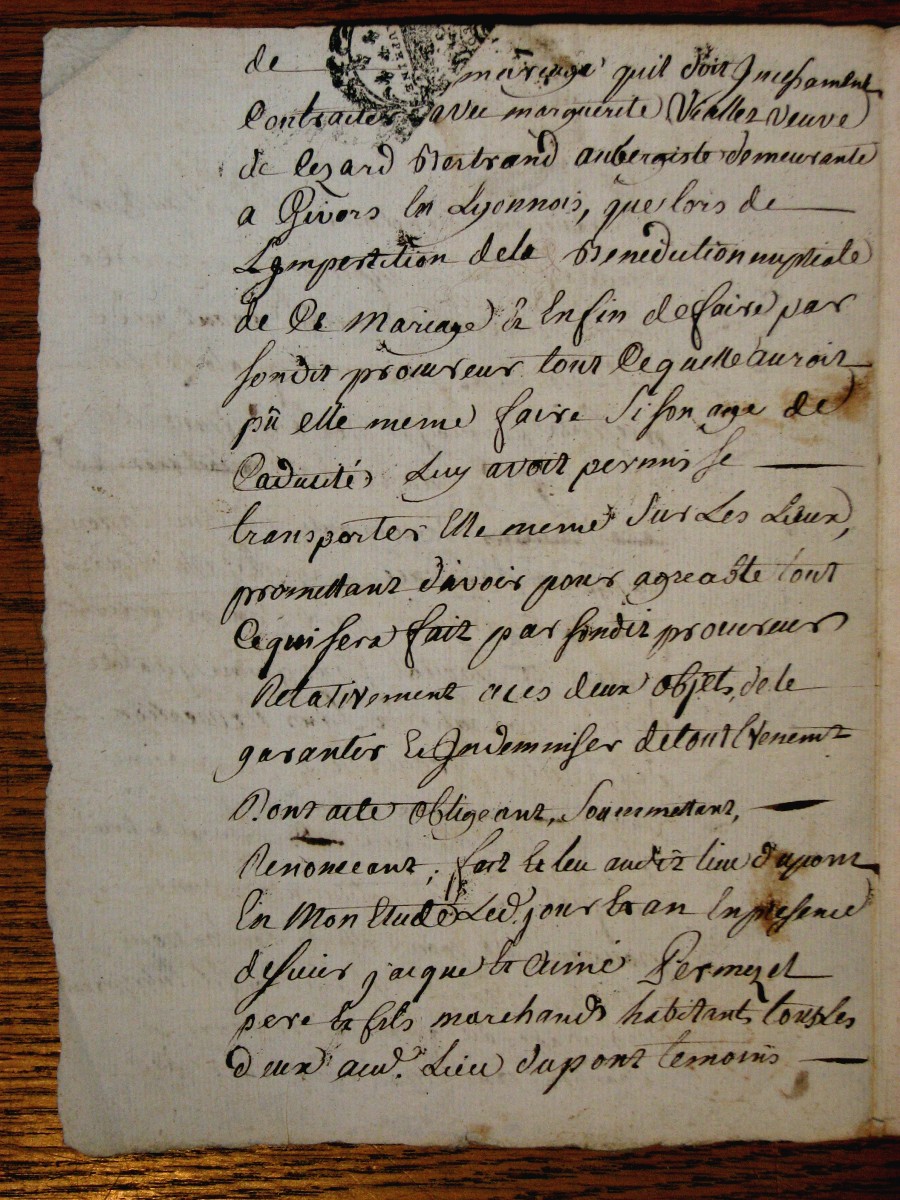 de mariage qu'il doit Incessament
Contracter avec marguerite Viallez veuve
de Cezard Bertrand aubergiste demeurante
a Givors En Lyonnois, que lors de
L'impertition dela Benediction nuptiale
de Ce Mariage & Enfin de faire par
sondit procureur tout Ce quelle auroit
pû elle meme faire Si son age de
Caducité Luy avoit permis se
transporter Elle meme Sur Les Lieux,
promettant d'avoir pour agreable tout
Ce qui sera fait par sondit procureur
Relativement a ces deux objets, de le
garantir & Indemniser de tout Evenemt
Dont acte obligeant, Soummettant,
Renonceant, fait & leu audit lieu dupont
En Mon Etude Led. jour & an En presence
de sieur jacque & aimé Permezel
pere & fils marchands habitants tous Les
deux aud. Lieu dupont temoins